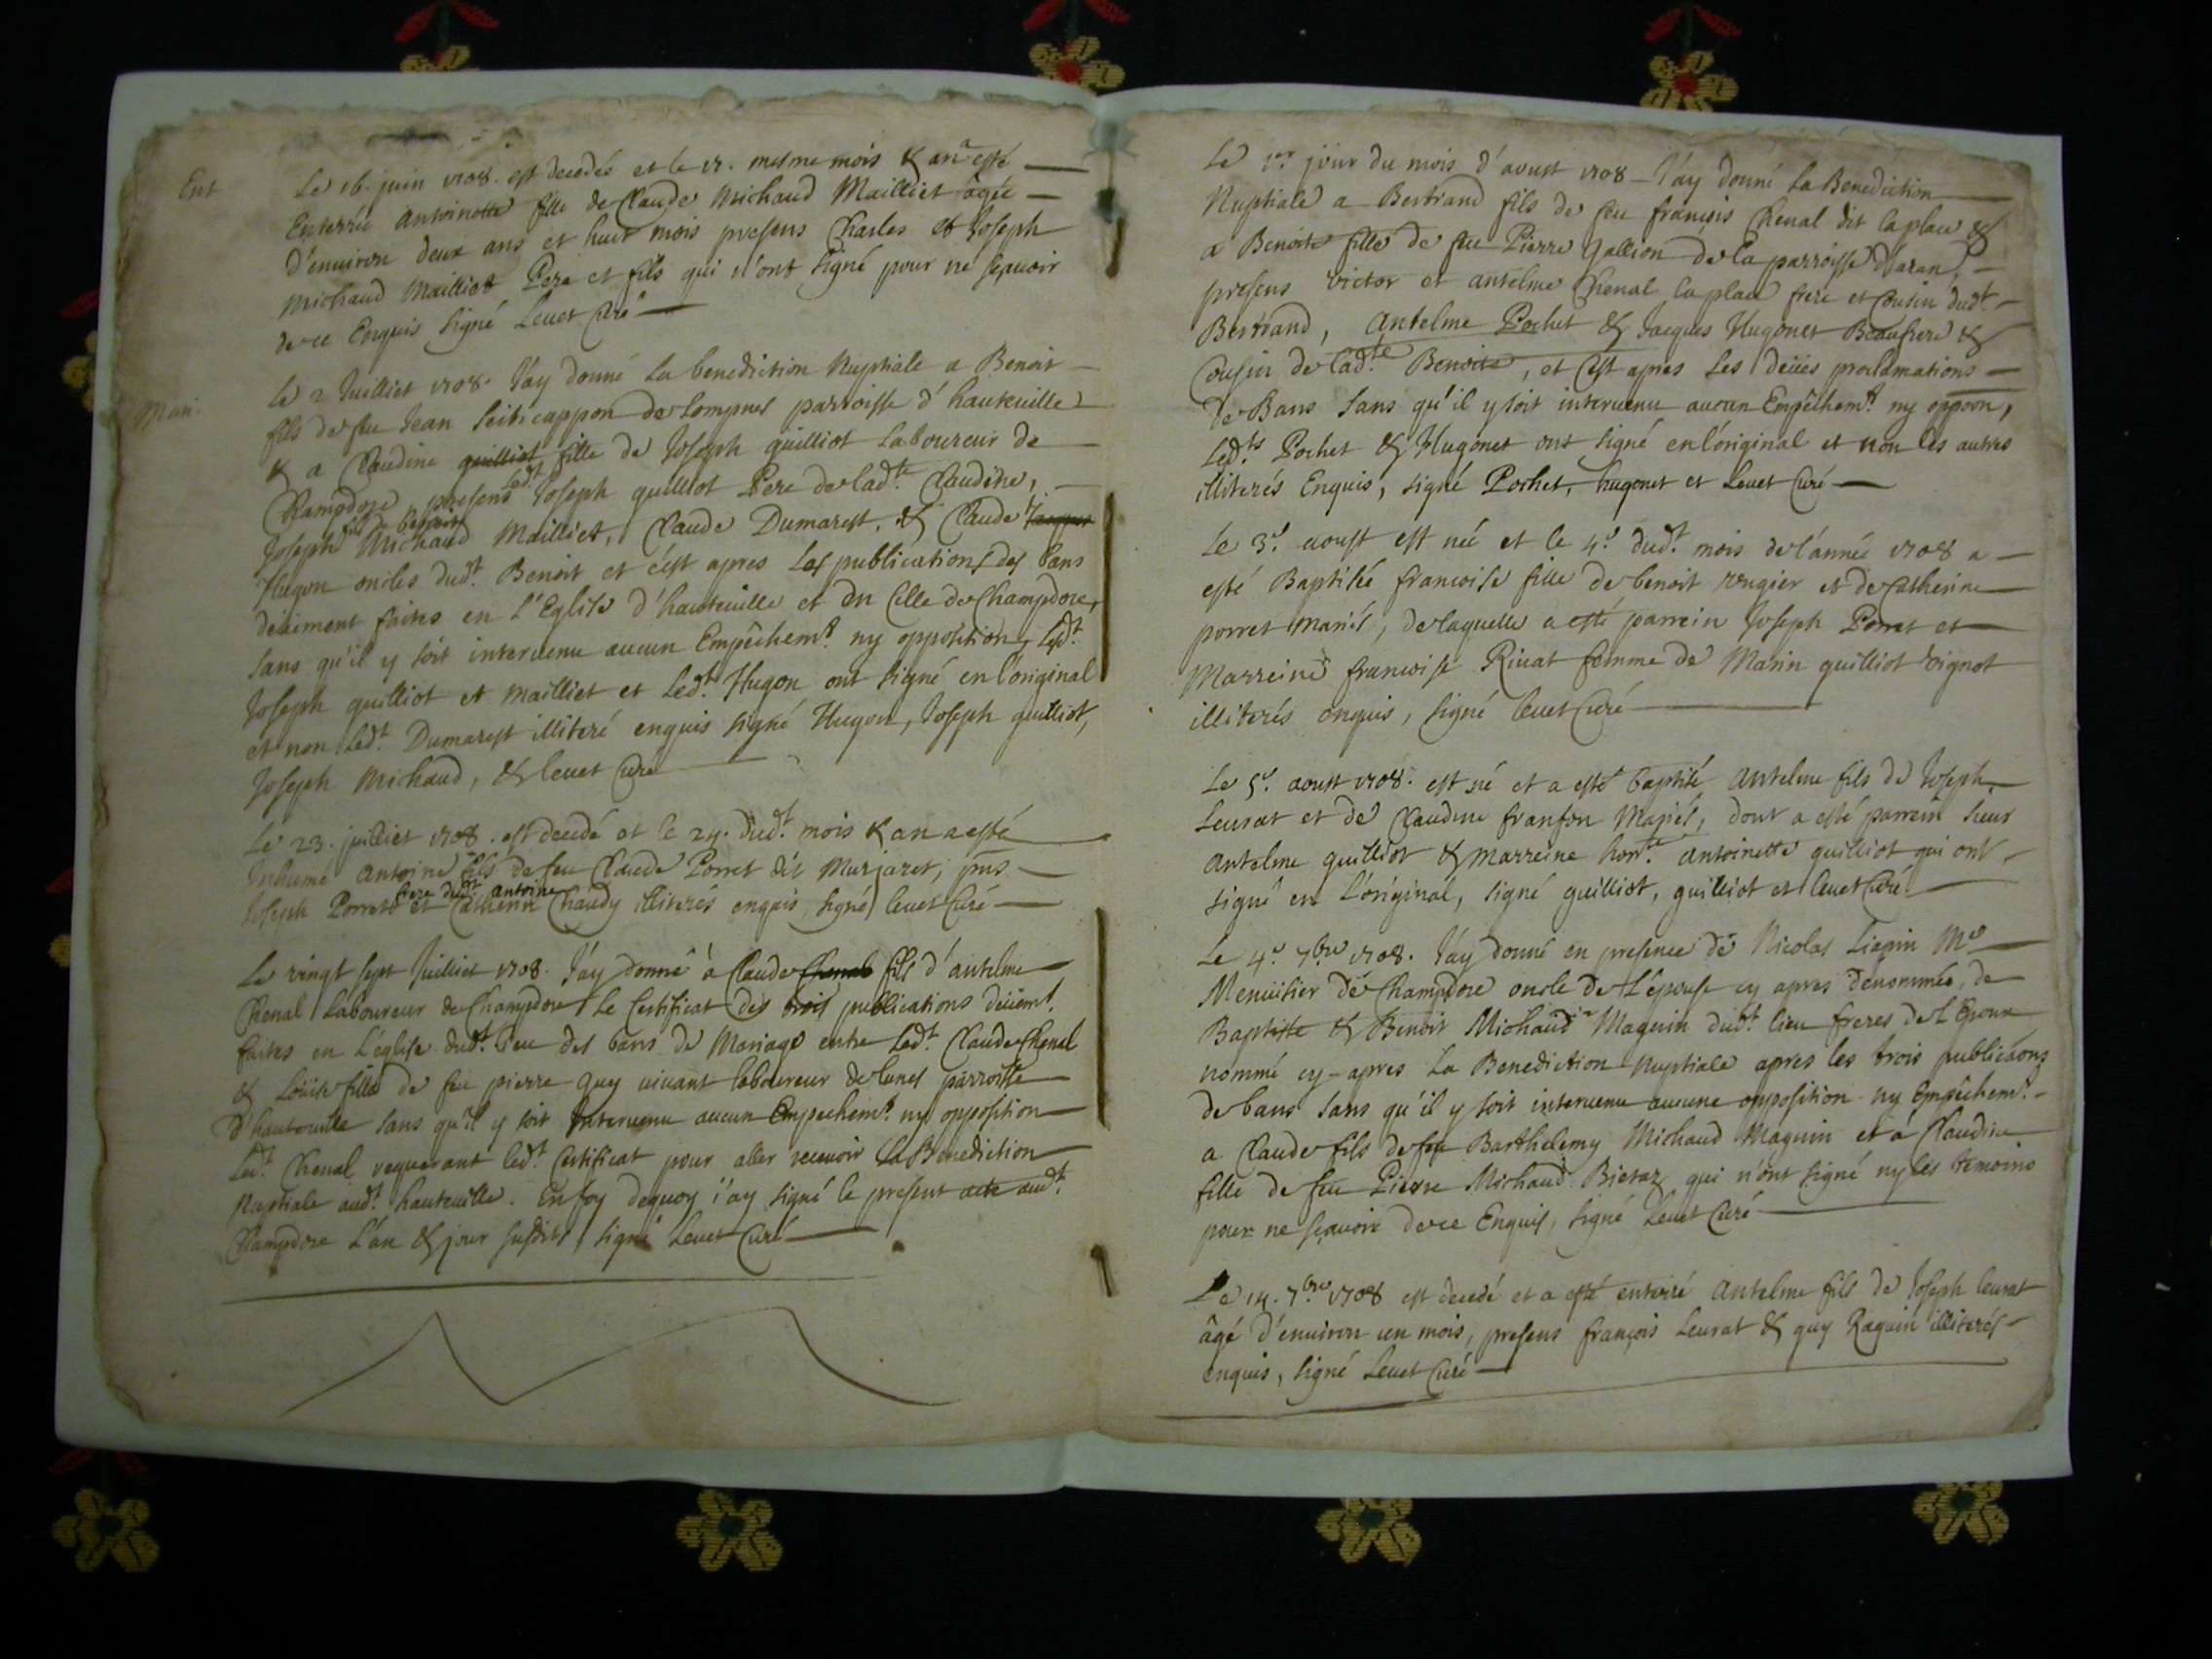 Ent
Le 16. juin 1708. est decedée et le 17. mesme mois & an esté
Enterrée Antoinette fille de Claude Michaud Mailliet âgée
d'enuiron deux ans et huit mois presens Charles et Joseph
Michaud Mailliet Pere et fils qui n'ont signé pour ne sçauoir
de ce Enquis signé Leuet Curé
Mari.
Le 2 Juilliet 1708. J'ay donné la benediction Nuptiale a Benoit
fils de feu Jean de Lompnes parroisse d'hauteuille
& a Claudine guilliot fille de Joseph guilliot Laboureur de
Champdore presens led.t Joseph guilliot Pere de lad.te Claudine,
Joseph Michaud Mailliet, Claude Dumarest, & Claude Jacques
Hugon oncles dud.t Benoit et c'est apres Les publications des bans
deuëment faites en L'Eglise d'hauteuille et en Celle de Champdore,
sans qu'il y soit interuenu aucun Empêchem.t ny opposition, Led.t
Joseph guilliot et Mailliet et Led.t Hugon ont signé en l'original
et non Led.t Dumarest illiteré enquis signé Hugon, Joseph guilliot,
Joseph Michaud, & leuet Curé
Le 23. juilliet 1708. est decedé et le 24. dud.t mois & an a esté
Inhumé Antoine fils de feu Claude Porret dit Murjaret, pns
frere dud.t antoine
Joseph Porret et Catherin Chaudy illiterés enquis signé leuet Curé
Le vingt sept Juilliet 1708. J'ay donné à Claude Chenal fils d'antelme
Chenal Laboureur de Champdore Le Certificat des trois publications deüem.t
faites en L'église dud.t lieu des bans de Mariage entre Led.t Claude Chenal
& Loüise fille de feu pierre Guy uiuant laboureur de lunes parroisse
d'hauteuille sans qu'il y soit Interuenu aucun Empechem.t ny opposition
Led.t Chenal requerant led.t Certificat pour aller receuoir La Benediction
Nuptiale aud.t hauteuille. En foy dequoy j'ay signé le present acte aud.t
Champdore L'an & jour susdits signé Leuet Curé
Le 1er jour du mois d'aoust 1708 J'ay donné La Benediction
Nuptiale a Bertrand fils de feu françois Chenal dit laplace &
a Benoite fille de feu Pierre Gallion de la parroisse d'aran,
presens victor et antelme Chenal laplace frere et Cousin dud.t
Bertrand, Antelme Pochet & Jacques Hugonet Beaufrere &
Cousin de lad.te Benoite, et C'est apres Les deües proclamations
de Bans sans qu'il y soit interuenu aucun Empêchem.t ny oppoon,
Led.ts Pochet & Hugonet ont signé en l'original et non les autres
illiterés Enquis, signé Pochet, hugonet et Leuet Curé
Le 3.e aoust est née et le 4.e dud.t mois de l'année 1708 a
esté Baptisée francoise fille de benoit rougier et de Catherine
porret Mariés, de laquelle a esté parrein Joseph Porret et
Marreine francoise Riuat femme de Marin guilliot vignot
illiterés enquis, signé leuet Curé
Le 5.e aoust 1708. est né et a esté baptisé Antelme fils de Joseph
Leurat et de Claudine franfon Mariés, dont a esté parrein sieur
Antelme guilliot & marreine hon.te Antoinette guilliot qui ont
signé en L'original, signé guilliot, guilliot et leuet Curé
Le 4.e 7bre 1708. J'ay donné en presence de Nicolas Liepin Me
Menüisier de Champdore oncle de L'épouse cy apres denommée, de
Baptiste & Benoit Michaud Maguin dud.t lieu freres de L'Epoux
nommé cy-apres La Benediction Nuptiale apres les trois publicaons
de bans sans qu'il y soit interuenu aucune opposition ny Empêchem.t
a Claude fils de feu Barthelemy Michaud Maguin et a Claudine
fille de feu Pierre Michaud Bietaz qui n'ont signé ny les temoins
pour ne sçauoir de ce Enquis, signé Leuet Curé
Le 14. 7bre 1708 est decedé et a esté enterré Antelme fils de Joseph leurat
âgé d'enuiron un mois, presens françois Leurat & guy Raguin illiterés
enquis, signé Leuet Curé